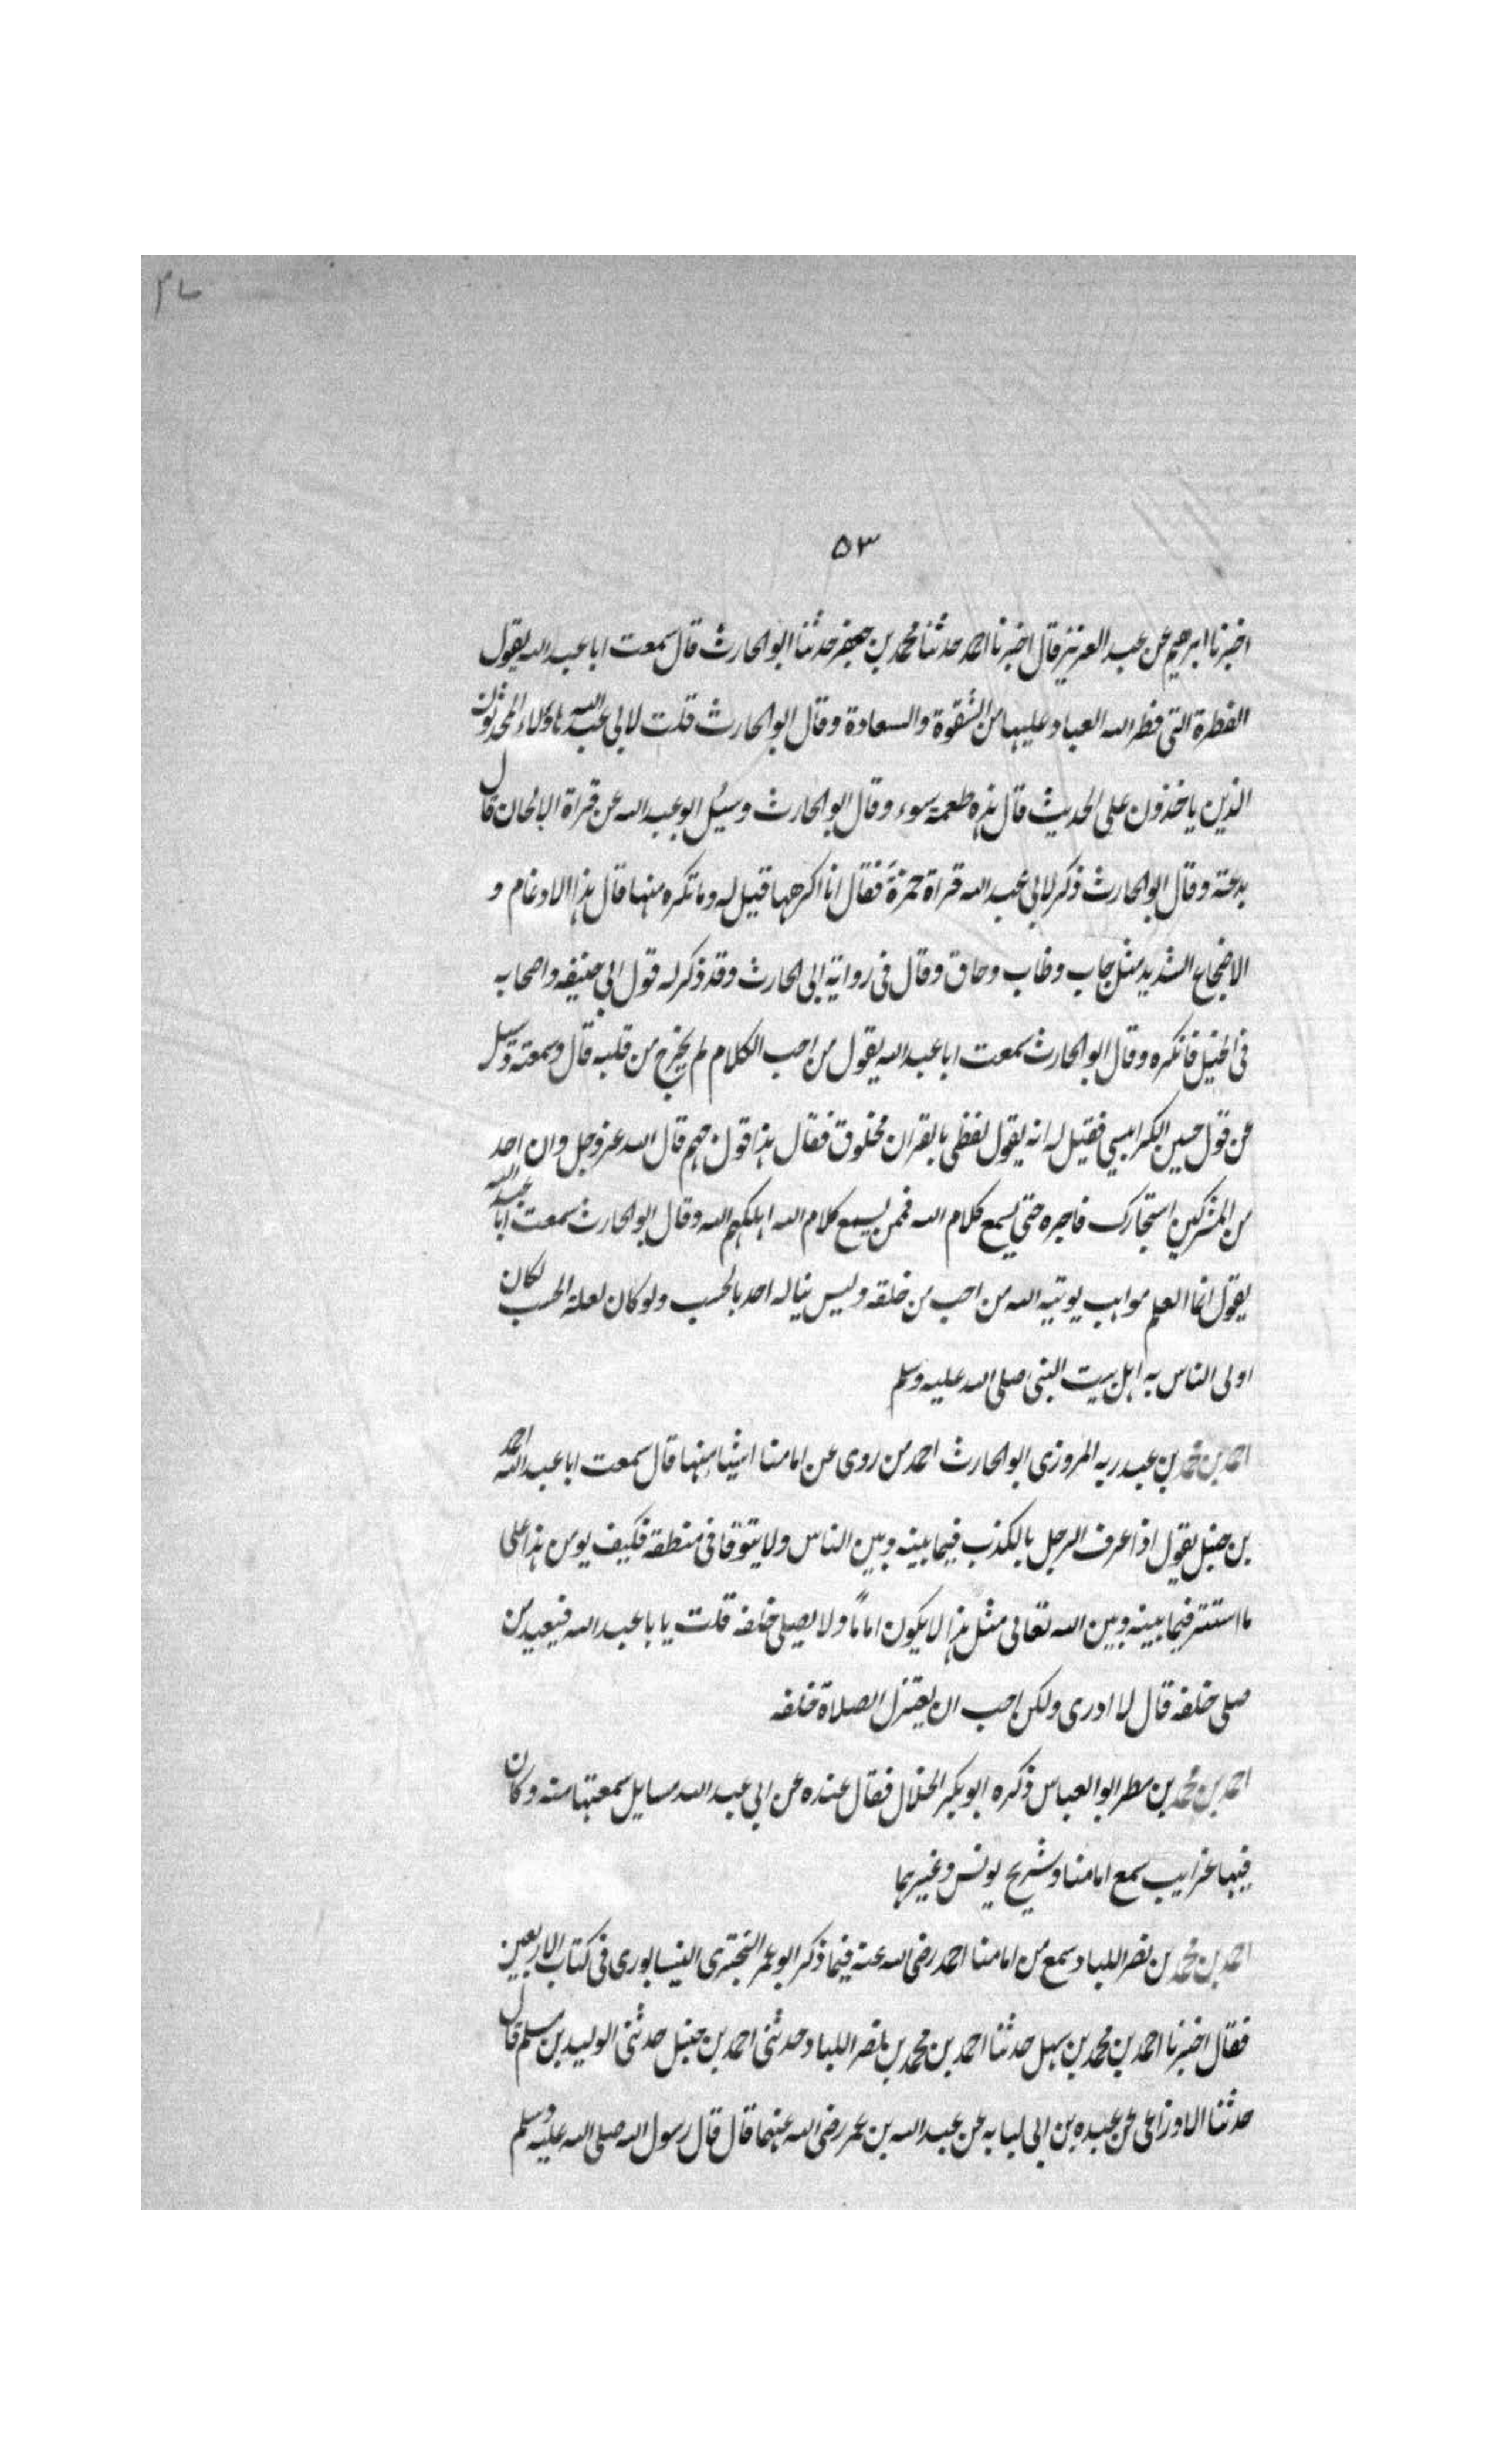 ٥٣
اخبرنا ابرهيم عن عبد العزيز قال اخبرنا احمد حدثنا محمد بن جعفر حدثنا ابو الحارث قال سمعت ابا عبد الله يقول
الفطرة التى فطر الله العباد عليها من الشقوة والسعادة وقال ابو الحارث قلت لابى عبد الله هاؤلاء المحدثون
الذين ياخذون على الحديث قال هذه طعمة سوء وقال ابو الحارث وسئل ابو عبد الله عن قراة الالحان قال
بدعة وقال ابو الحارث ذكر لابى عبد الله قراة حمزة فقال انا اكرهها قيل له وما تكره منها قال هذا الادغام و
الاضجاع الشديد مثل جاب وطاب وحاق وقال فى رواية ابى الحارث وقد ذكر له قول ابى حنيفه واصحابه
فى الحيل فانكره وقال ابو الحارث سمعت ابا عبد الله يقول من احب الكلام لم يخرج من قلبه قال وسمعته وسئل
عن قول حسين الكرابيسي فقيل له انه يقول لفظى بالقران مخلوق فقال هذا قول جهم قال الله عز وجل وان احد
من المشركين استجارك فاجره حتى يسمع كلام الله فممن يسمع كلام الله اهلكهم الله وقال ابو الحارث سمعت ابا عبد الله
يقول انما العلم مواهب يوتيه الله من احب من خلقه وليس يناله احد بالحسب ولو كان لعلة الحسب لكان
اولى الناس به اهل بيت النبى صلى الله عليه وسلم
احمد بن محمد بن عبد ربه المروزى ابو الحارث احد من روى عن امامنا اشيا منها قال سمعت ابا عبد الله احمد
بن حنبل يقول اذا عرف الرجل بالكذب فيما بينه وبين الناس ولا يتوقا فى منطقه فكيف يومن هذا على
ما استتر فيما بينه وبين الله تعالى مثل هذا لا يكون اماما ولا يصلى خلفه قلت يا با عبد الله فيعيد من
صلى خلفه قال لا ادرى ولكن احب ان يعتزل الصلاة خلفه
احمد بن محمد بن مطر ابو العباس ذكره ابو بكر الخلال فقال عنده عن ابى عبد الله مسايل سمعتها منه وكان
فيها غرايب سمع امامنا وشريح يونس وغيرهما
احمد بن محمد بن نصر اللباد سمع من امامنا احمد رضى الله عنه فيما ذكر ابو عمر البحترى النيسابورى فى كتاب الاربعين
فقال اخبرنا احمد بن محمد بن سهل حدثنا احمد بن محمد بن نصر اللباد حدثنى احمد بن حنبل حدثنى الوليد بن مسلم قال
حدثنا الاوزاعى عن عبده بن ابى لبابه عن عبد الله بن عمر رضى الله عنهما قال قال رسول الله صلى الله عليه وسلم